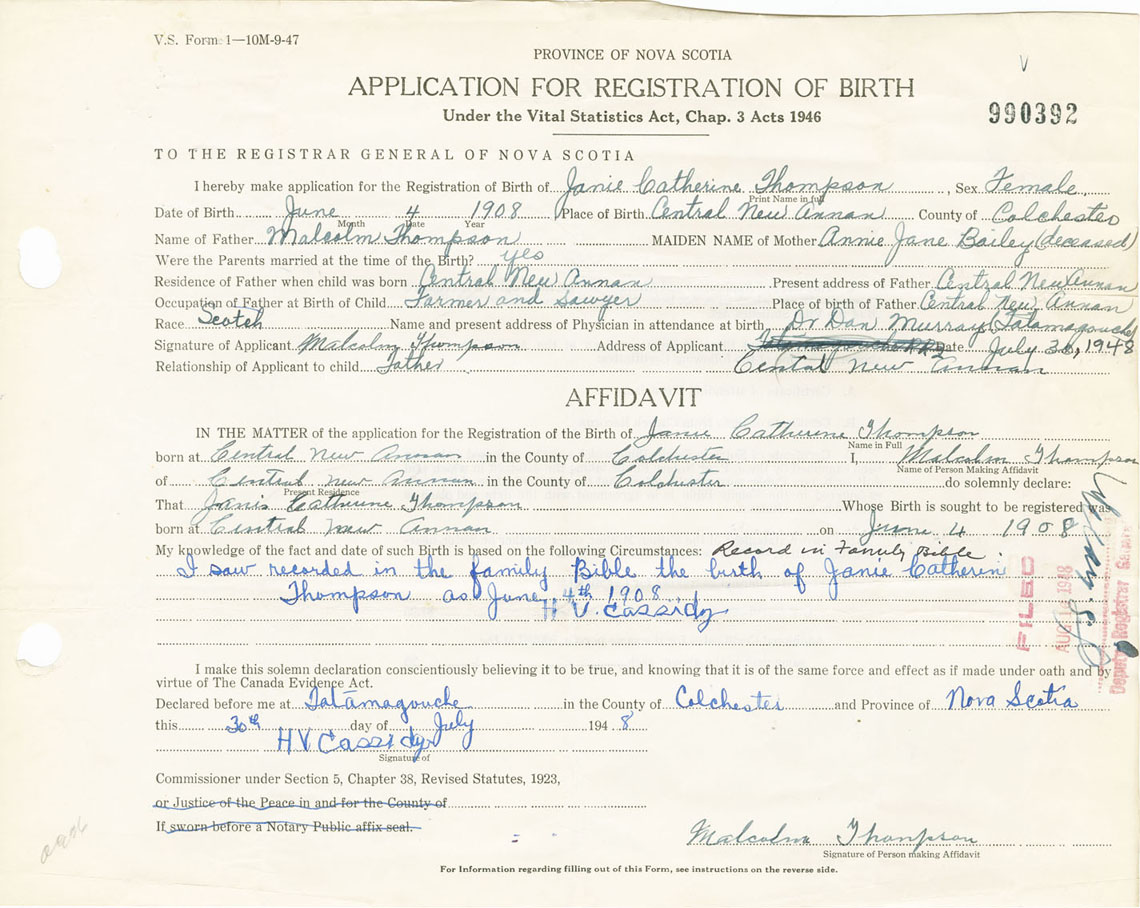 V.S. Form 1—10M-9-47
PROVINCE OF NOVA SCOTIA
APPLICATION FOR REGISTRATION OF BIRTH
990392
Under the Vital Statistics Act, Chap. 3 Acts 1946
TO THE REGISTRAR GENERAL OF NOVA SCOTIA
I hereby make application for the Registration of Birth of Janie Catherine Thompson, Sex Female
Print Name in full
Date of Birth June 4 1908 Place of Birth Central New Annan County of Colchester
Month Date Year
Name of Father Malcolm Thompson MAIDEN NAME of Mother Annie Jane Bailey (deceased)
Were the Parents married at the time of the Birth? yes
Residence of Father when child was born Central New Annan Present address of Father Central New Annan
Occupation of Father at Birth of Child Farmer and Sawyer Place of birth of Father Central New Annan
Race Scotch Name and present address of Physician in attendance at birth Dr Dan Murray (Tatamagouche)
Signature of Applicant Malcolm Thompson Address of Applicant Tatamagouche RR2 Date July 30, 1948
Relationship of Applicant to child Father Central New Annan
AFFIDAVIT
IN THE MATTER of the application for the Registration of the Birth of Janie Catherine Thompson
Name in Full
born at Central New Annan in the County of Colchester I, Malcolm Thompson
Name of Person Making Affidavit
of Central New Annan in the County of Colchester do solemnly declare:
Present Residence
That Janie Catherine Thompson Whose Birth is sought to be registered was
born at Central New Annan on June 4 1908
My knowledge of the fact and date of such Birth is based on the following Circumstances: Record in Family Bible.
I saw recorded in the family Bible the birth of Janie Catherin
Thompson as June 4th 1908
H V. Cassidy
FILED
AUG 1948
Deputy Registrar General
I make this solemn declaration conscientiously believing it to be true, and knowing that it is of the same force and effect as if made under oath and by
virtue of The Canada Evidence Act.
Declared before me at Tatamagouche in the County of Colchester and Province of Nova Scotia
this 30th day of July 1948
H V Cassidy
Signature of
Commissioner under Section 5, Chapter 38, Revised Statutes, 1923,
or Justice of the Peace in and for the County of
If sworn before a Notary Public affix seal.
Malcolm Thompson
Signature of Person making Affidavit
For Information regarding filling out of this Form, see instructions on the reverse side.